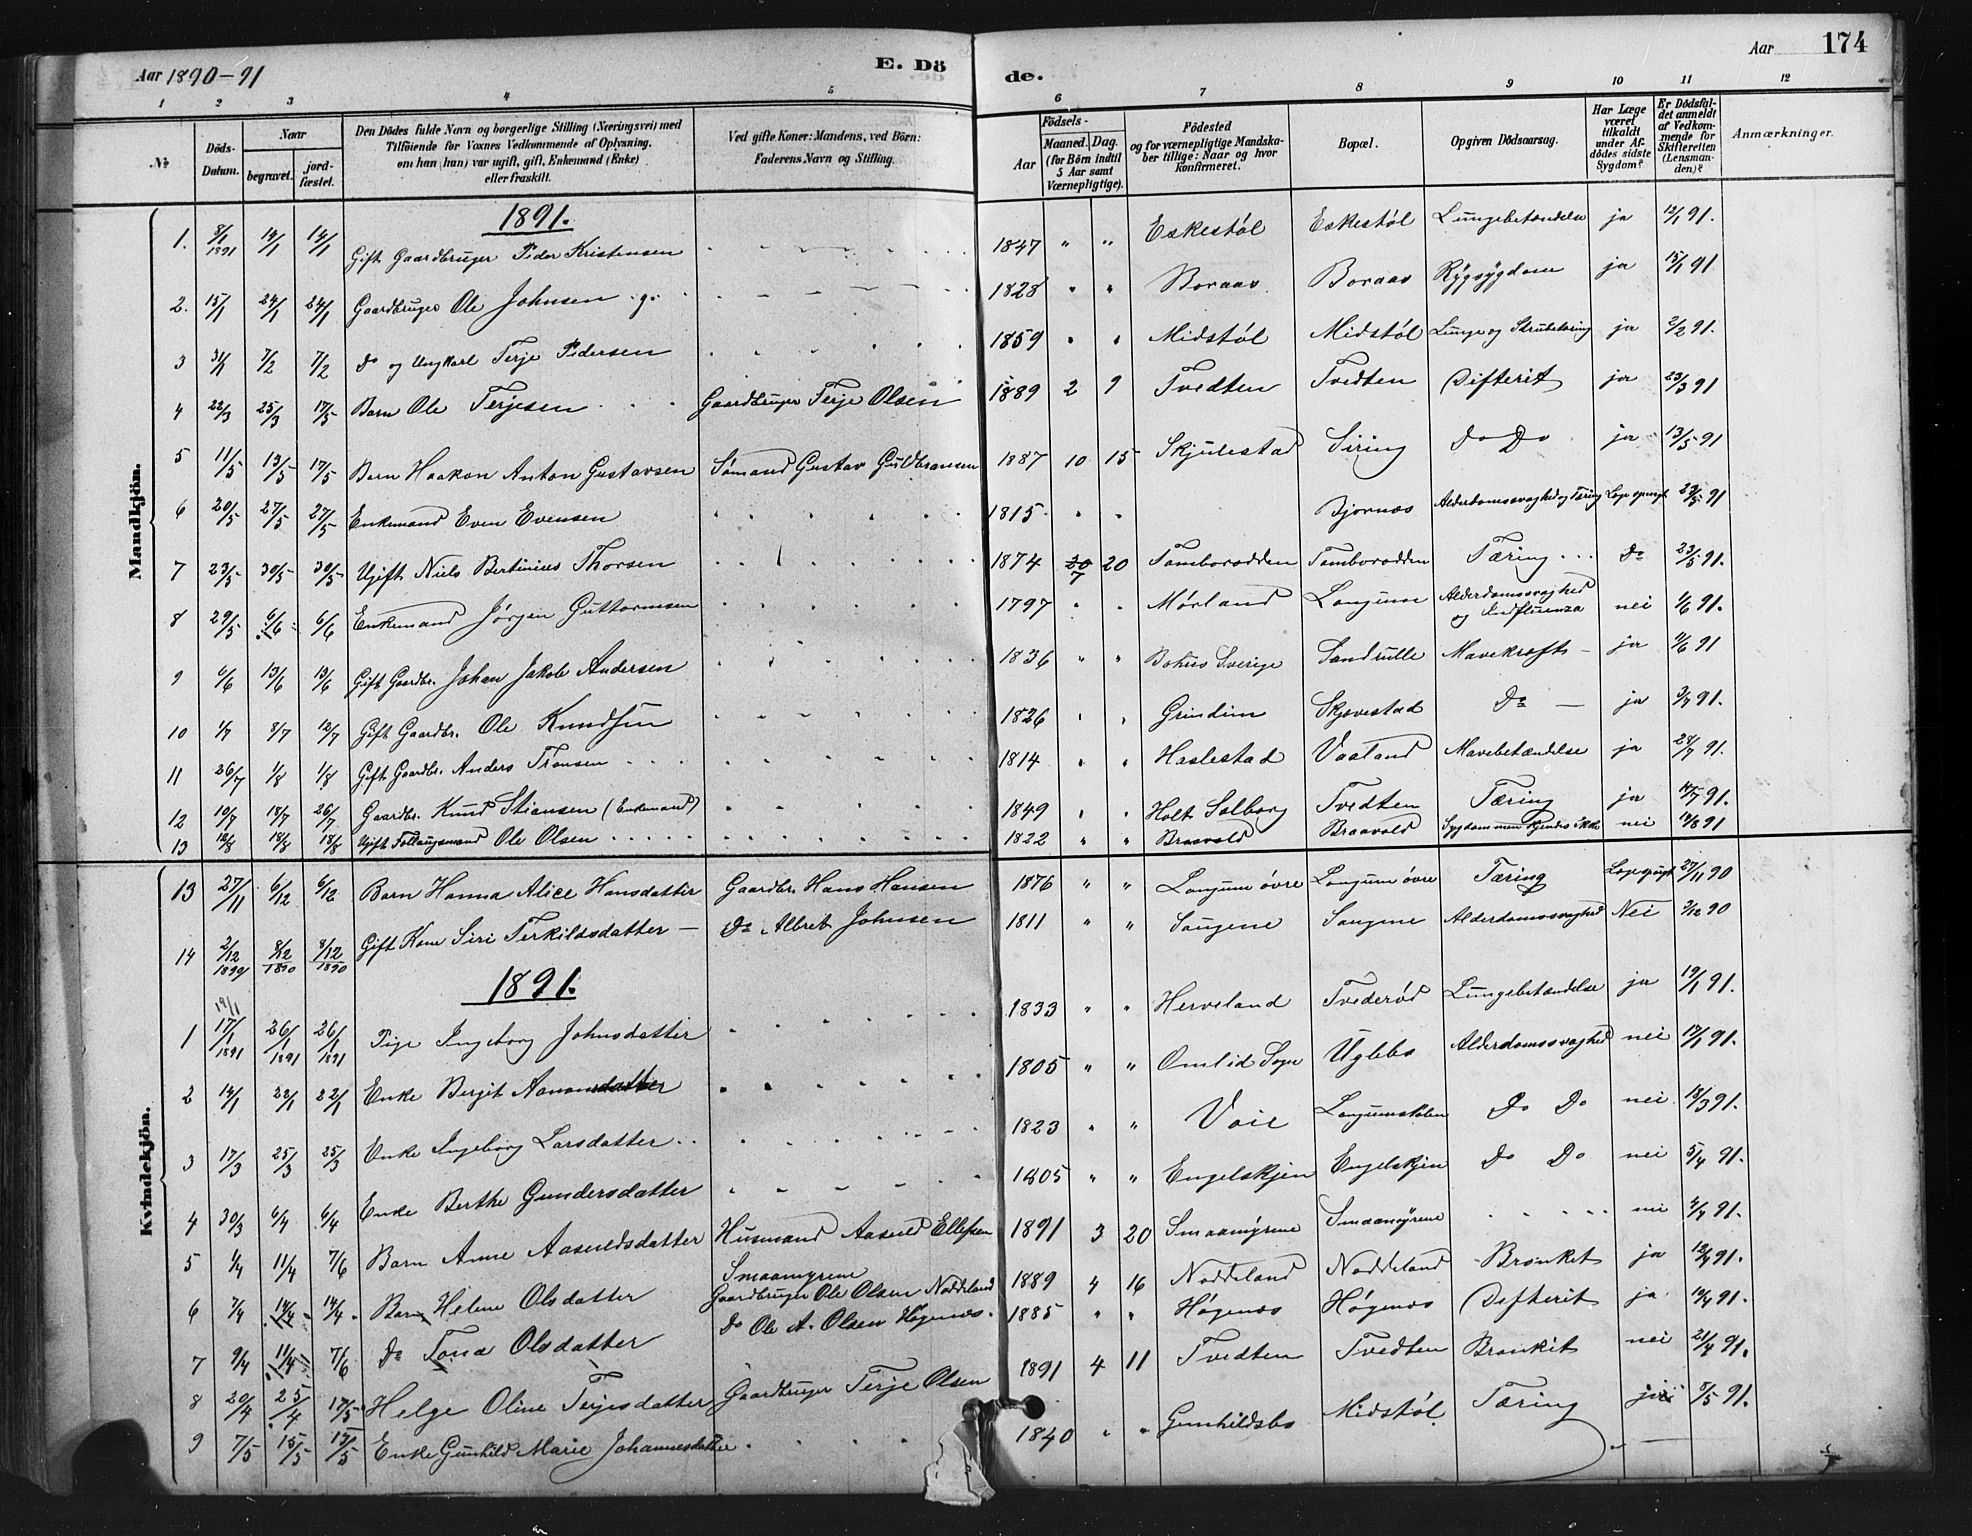 Aar 1890-91
E. Dö
de.
Aar 174
1 2 3 4 5 6 7 8 9 10 11 12
№
Döds-Datum.
Naar
begravet.
jord-fæstet.
Den Dödes fulde Navn og borgerlige Stilling (Næringsvei) med
Tilföiende for Voxnes Vedkommende af Oplysning,
om han (hun) var ugift, gift, Enkemand (Enke)
eller fraskilt.
Ved gifte Koner: Mandens, ved Börn:
Faderens Navn og Stilling.
Födsels-
Aar
Maaned. Dag.
(for Börn indtil
5 Aar samt
Værnepligtige).
Födested
og for værnepligtige Mandska-
ber tillige: Naar og hvor
konfirmeret.
Bopæl.
Opgiven Dödsaarsag.
Har Læge
været
tilkaldt
under Af-
dödes sidste
Sygdom?
Er Dödsfal-
det anmeldt
af Vedkom-
mende for
Skifteretten
(Lensman-
den)?
Anmærkninger.
Mandkjön.
1891.
1. 8/1 1891 14/1 14/1 Gift Gaardbruger Peder Kristensen 1847 " " Eskestøl Eskestøl Lungebetændelse ja 12/1 91.
2. 15/1 24/1 24/1 Gaardbruger Ole Johnsen g. 1828 " " Boraas Boraas Rygsygdom ja 15/1 91
3 31/1 7/2 7/2 Do og Ungkarl Terje Pedersen 1859 " " Midstøl Midstøl Lunge og Strubetæring ja 2/2 91.
4 22/3 25/3 17/5 Barn Ole Terjesen Gaardbruger Terje Olsen 1889 2 9 Tvedten Tvedten Difterit ja 23/3 91
5 11/5 13/5 17/5 Barn Haakon Anton Gustavsen Sømand Gustav Guldbransen 1887 10 15 Skjulestad Siring Do Do ja 13/5 91
6 20/5 27/5 27/5 Enkemand Even Evensen 1815 " " Bjornes Alderdomssvaghed og Tæring 23/5 91
7 23/5 30/5 30/5 Ugift Niels Bertinius Thorsen 1874 7 20 Tamborodden Tamborodden Tæring Do 23/5 91.
8 29/5 6/6 6/6 Enkemand Jørgen Guttormsen 1797 " " Mørland Longum Alderdomssvaghed
og Indfluenza nei 1/6 91.
9 6/6 13/6 13/6 Gift Gaardbr. Johan Jakob Andersen 1836 " " Bohus Sverige Sandrulle Mavekræft ja 91
10 1/7 8/7 12/7 Gift Gaardbr. Ole Knudsen 1826 " " Grindim Skjævestad Do ja 3/7 91.
11 26/7 1/8 1/8 Gift Gaardbr. Anders Tronsen 1814 " " Haslestad Vaaland Mavebetændelse ja 28/7 91.
12 10/7 18/7 26/7 Gaardbr. Knud Stiansen (Enkemand) 1849 " " Holt Solborg Tvedten Tæring ja 14/7 91.
13 12/8 18/8 18/8 Ugift Follaugsmand Ole Olsen 1822 " " Braavold Braavold Sygdommen kjendes ikke nei 14/8 91
Kvindekjön.
13 27/11 6/12 6/12 Barn Hanna Alice Hansdatter Gaardbr. Hans Hansen 1876 " " Longum øvre Longum øvre Tæring 27/11 90
14 2/12 1890 8/12 1890 8/12 1890 Gift Kone Siri Terkildsdatter Do Albret Johnsen 1811 " " Sougene Sangene Alderdomssvaghed Nei 3/12 90
1891.
19/1
1 17/1 1891 26/1 1891 26/1 1891 Pige Ingeborg Johnsdatter 1833 " " Herveland Tvederød Lungebetændelse ja 19/1 91.
2 14/1 22/1 22/1 Enke Bergit Aanonsdatter 1805 " " Omlid Sogn Uglebo Alderdomssvaghed nei 17/1 91.
3 17/3 25/3 25/3 Enke Ingeborg Larsdatter 1823 " " Voie Do Do nei 18/3 91.
4 30/3 6/4 6/4 Enke Berthe Gundersdatter 1805 " " Engelskjen Engelskjen Do Do nei 5/4 91.
5 1/4 11/4 7/6 Barn Anne Aasuldsdatter Husmand Aasuld Ellefsen
Smaamyrene 1891 3 20 Smaamyrene Smaamyrene nei 2/4 91.
6 7/4 14/4 14/4 Barn Helene Olsdatter Gaardbruger Ole Olsen Noddeland 1889 4 16 Noddeland Noddeland Bronket ja 12/4 91.
7 9/4 11/4 7/6 Do Tona Olsdatter Do Ole A. Olsen Høgenes. 1885 " " Høgenes Høgenes Difterit ja 91.
8 20/4 25/4 17/5 Helge Oline Terjesdatter Gaardbruger Terje Olsen 1891 4 11 Tvedten Tvedten Bronkit nei 21/4 91.
9 7/5 15/5 15/5 Enke Gunhild Marie Johannesdatter 1840 " " Gunhildsbo Midstøl. Tæring 8/5 91.